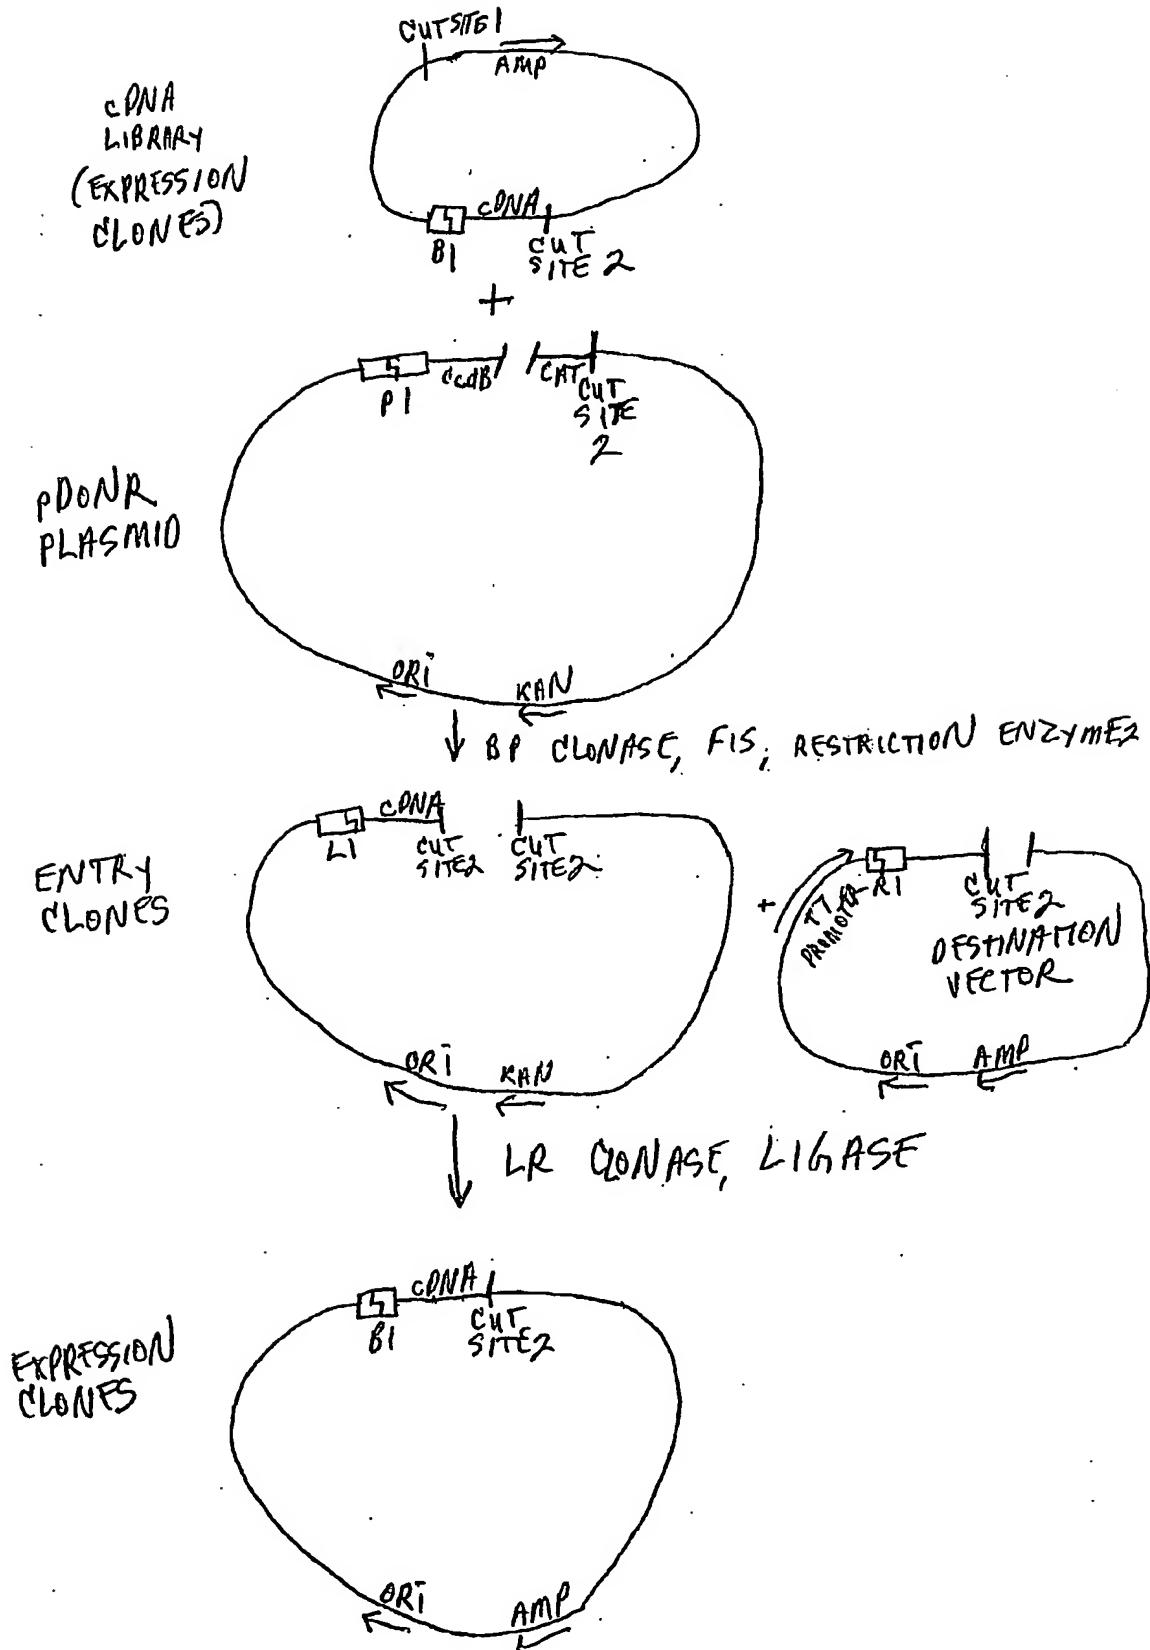 CUT SITE 1
AMP
cDNA
LIBRARY
(EXPRESSION
CLONES)
B1
cDNA
CUT
SITE 2
+
P1
CcdB
CAT
CUT
SITE
2
pDONR
PLASMID
ORI
KAN
BP CLONASE, FIS, RESTRICTION ENZYME2
ENTRY
CLONES
L1
cDNA
CUT
SITE2
CUT
SITE2
ORI
KAN
+
T7
PROMOTER
R1
CUT
SITE2
DESTINATION
VECTOR
ORI
AMP
LR CLONASE, LIGASE
EXPRESSION
CLONES
B1
cDNA
CUT
SITE2
ORI
AMP